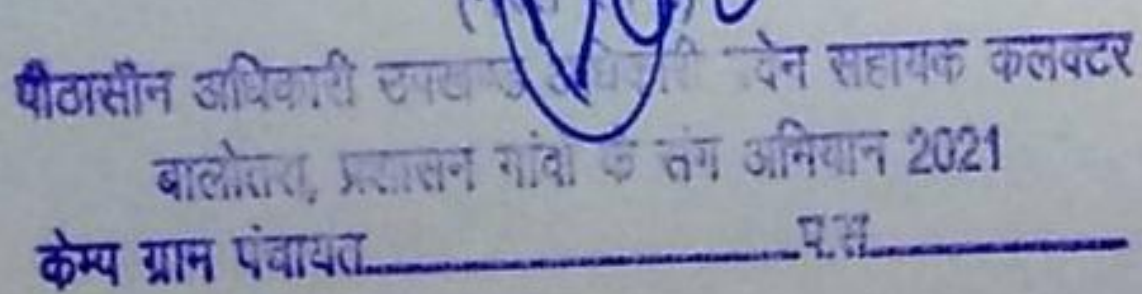 पीठासीन अधिकारी उपखण्ड अधिकारी पदेन सहायक कलक्टर
बालोतरा, प्रशासन गांवो के संग अभियान 2021
केम्प ग्राम पंचायत.............................प.स.....................